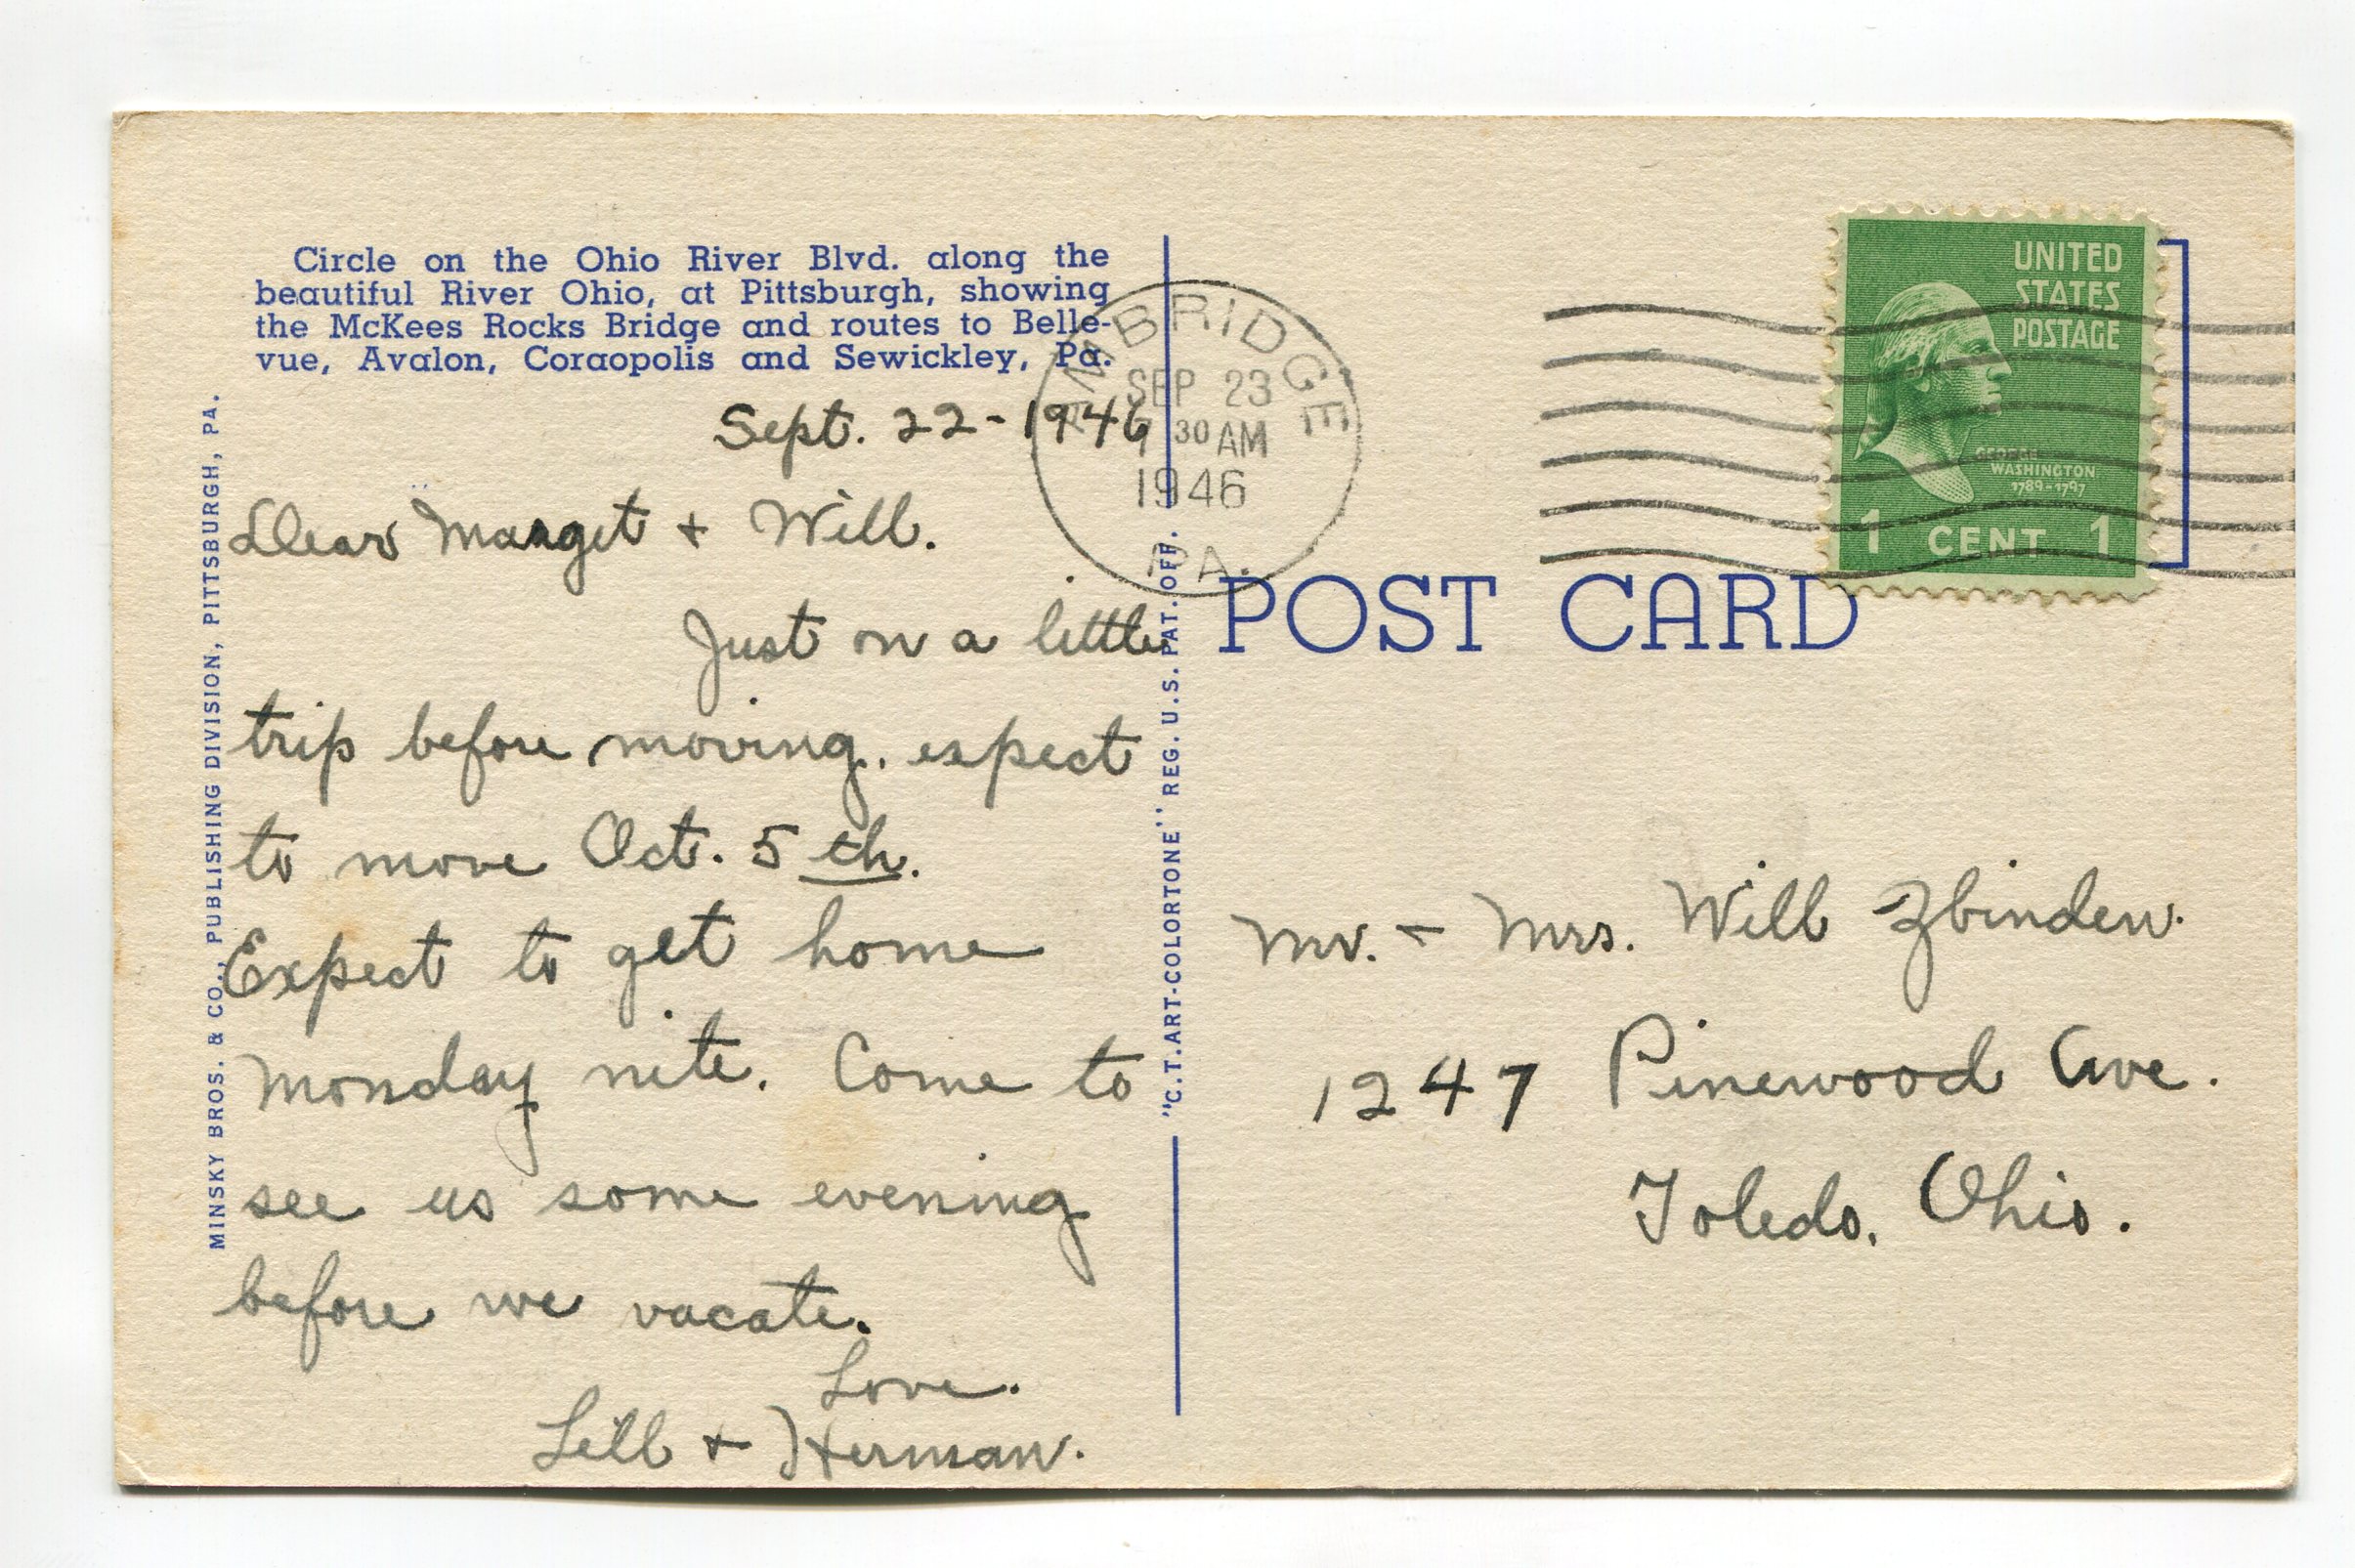 Circle on the Ohio River Blvd. along the
beautiful River Ohio, at Pittsburgh, showing
the McKees Rocks Bridge and routes to Belle-
vue, Avalon, Coraopolis and Sewickley, Pa.
Sept. 22-1946
Dear Marget + Will.
Just on a little
trip before moving. expect
to move Oct. 5 th.
Expect to get home
Monday nite. Come to
see us some evening
before we vacate.
Love.
Lill + Herman.
MINSKY BROS. & CO., PUBLISHING DIVISION, PITTSBURGH, PA.
"C.T. ART-COLORTONE" REG. U.S. PAT. OFF.
AMBRIDGE
SEP 23
7 30 AM
1946
PA.
UNITED
STATES
POSTAGE
GEORGE
WASHINGTON
1789-1797
1 CENT 1
POST CARD
Mr. + Mrs. Will Zbinden.
1247 Pinewood Ave.
Toledo, Ohio.